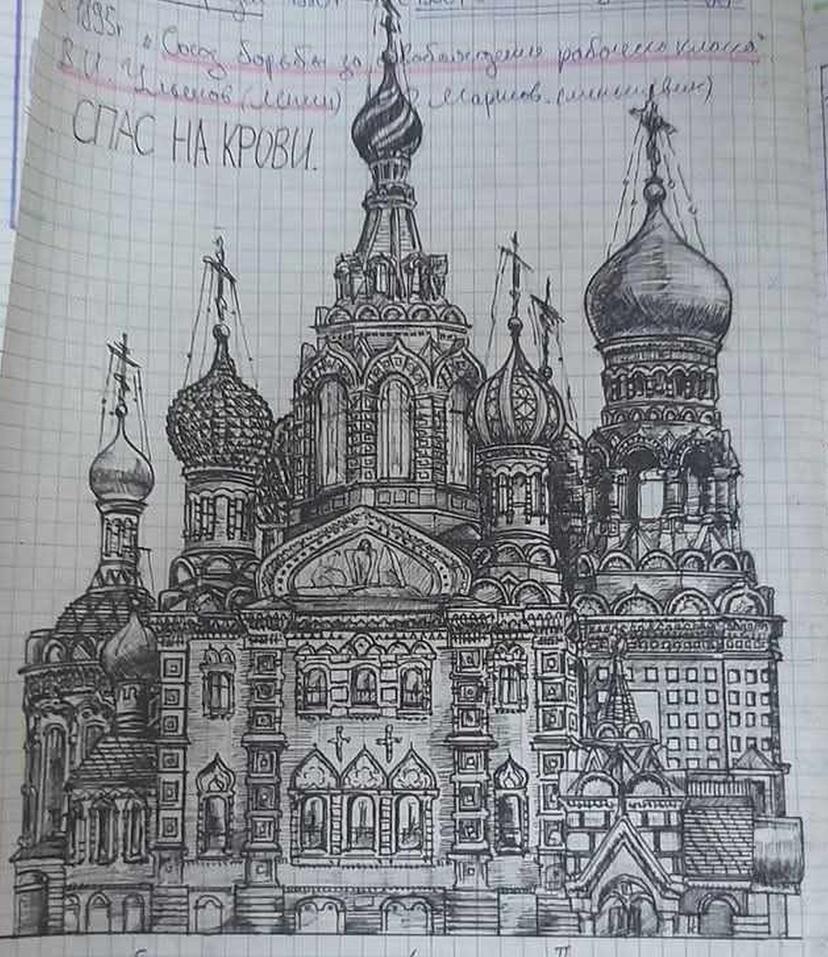 с 1895г. "Союз борьбы за освобождение рабочего класса"
В.И. Ульянов (Ленин) Мартов. (меньшевик)
СПАС НА КРОВИ.